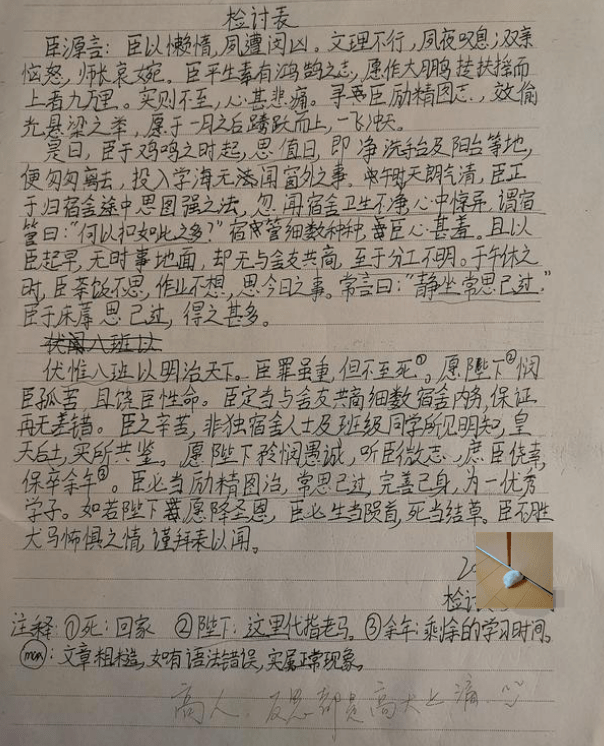 检讨表
臣源言：臣以懒惰，夙遭闵凶。文理不行，夙夜叹息；双亲
恼怒，师长哀婉。臣平生素有鸿鹄之志，愿作大鹏抟扶摇而
上者九万里。实则不至，心甚悲痛。寻臣励精图志，效偷
光悬梁之举，愿于一月之后踌跃而上，一飞冲天。
是日，臣于鸡鸣之时起，思值日，即净洗手台及阳台等地，
便匆匆离去，投入学海无法闻窗外之事。中午时天朗气清，臣正
于归宿舍途中思图强之法，忽闻宿舍卫生不净，心中惊异，谓宿
管曰："何以扣如此之多？"宿管细数种种，臣心甚羞。且以
臣起早，无时事地面，却无与舍友共商，至于分工不明。于午休之
时，臣茶饭不思，作业不想，思今日之事。常言曰："静坐常思己过。"
臣于床蓐思己过，得之甚多。
伏闻八班以
伏惟八班以明治天下。臣罪虽重，但不至死①。愿陛下②悯
臣孤苦，且饶臣性命。臣定当与舍友共商细数宿舍内务，保证
再无差错。臣之辛苦，非独宿舍人士及班级同学所见明知，皇
天后土，实所共鉴。愿陛下矜悯愚诚，听臣微志，庶臣侥幸，
保卒余年③。臣必当励精图治，常思己过，完善己身，为一优秀
学子。如若陛下愿降圣恩，臣必生当陨首，死当结草。臣不胜
犬马怖惧之情，谨拜表以闻。
20
检讨
注释：①死：回家 ②陛下：这里代指老马。③余年：剩余的学习时间。
：文章粗糙，如有语法错误，实属正常现象。
高人，反思都是高大上